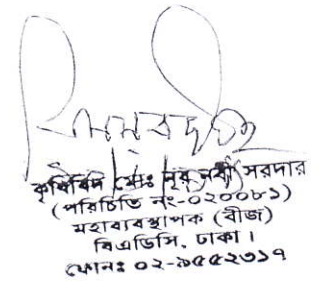 কৃষিবিদ মোঃ নূর নবী সরদার
(পরিচিতি নং-০২০০৮১)
মহাব্যবস্থাপক (বীজ)
বিএডিসি, ঢাকা।
ফোনঃ ০২-৯৫৫২৩১৭